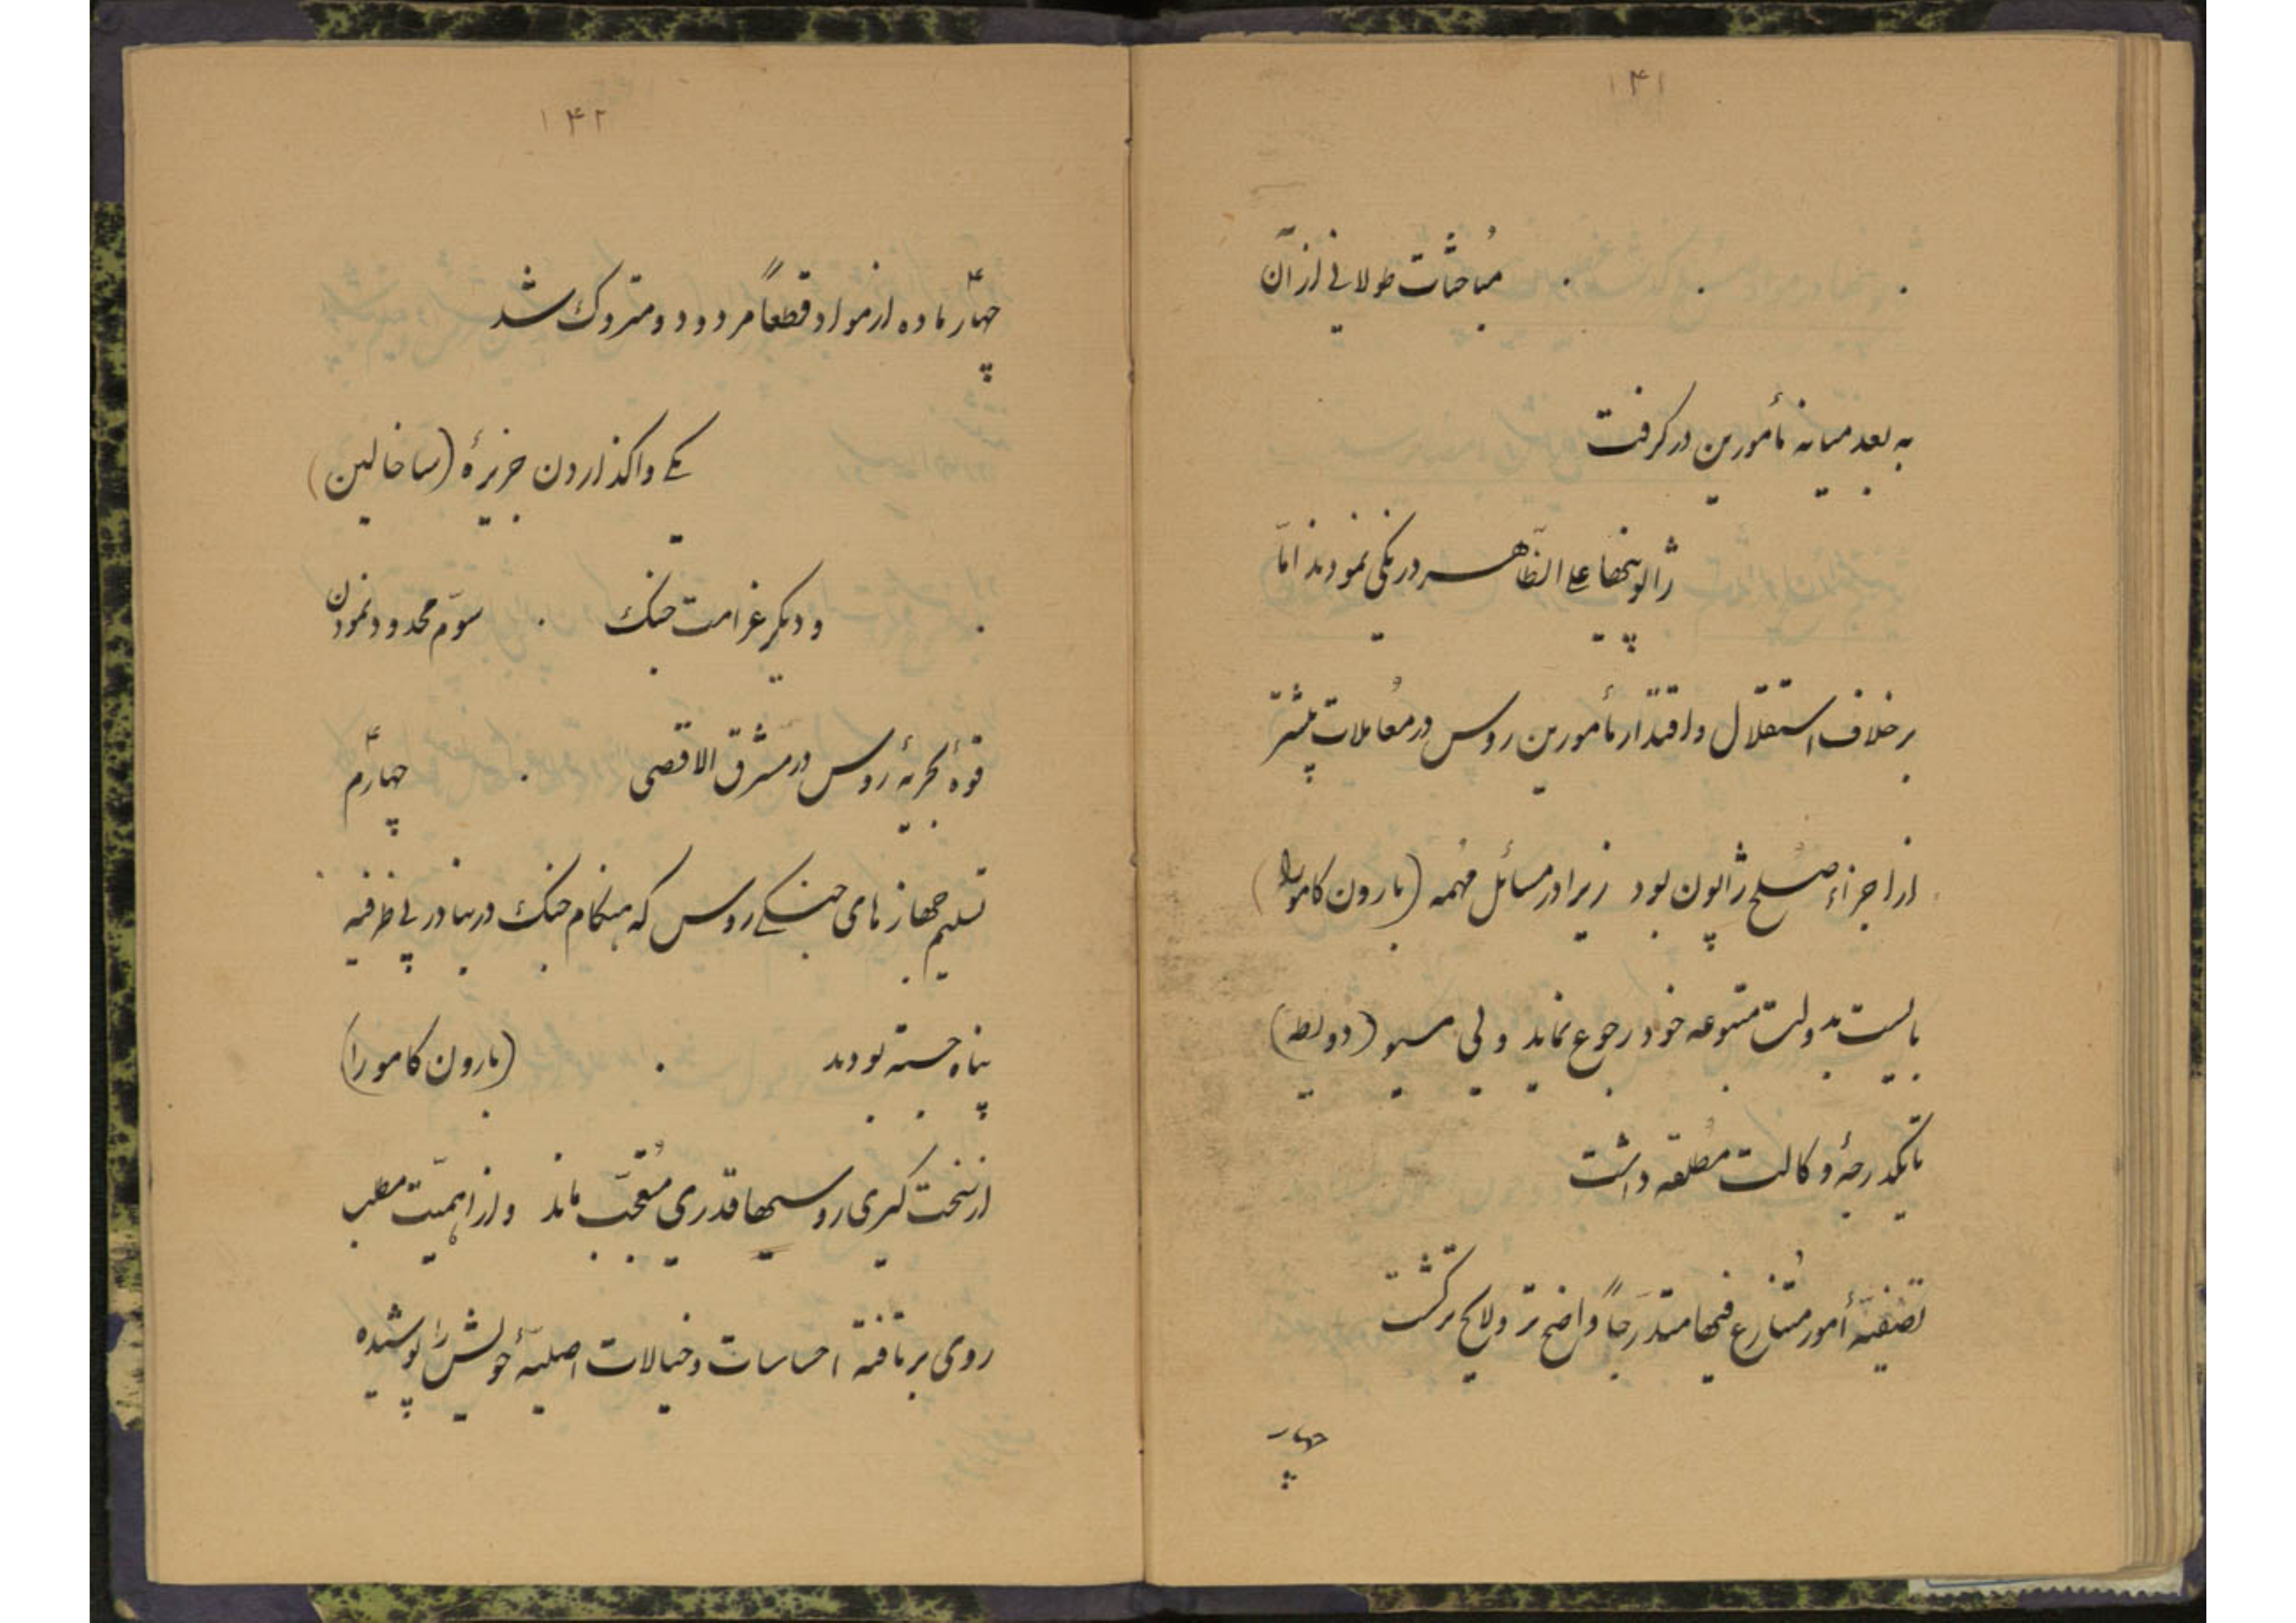 ۱۴۱
. . . مُباحثات طولانی از آن
به بعد میانه مأمورین درگرفت
ژاپونیها علی الظّاهر درنگی نمودند امّا
برخلاف استقلال و اقتدار مأمورین روس در مُعاملات بیشتر
از اجزاء صُلح ژاپون بود زیرا در مسائل مُهمه (بارون کامورا)
بایست بدولت متبوعه خود رجوع نماید ولی مسیو (دویطه)
تا یکدرجهٔ وکالت مطلقه داشت
تصفیهٔ أمور مُتنازع فیها متدرجاً واضح تر و لایح تر گشت
چهار
۱۴۲
چهار ۴ ماده از مواد قطعاً مردود و متروک شد
یکی واگذاردن جزیرهٔ (ساخالین)
. و دیگر غرامت جنگ . سوّم محدود نمودن
قوهٔ بحریهٔ روس در مشرق الاقصی . چهارم ۴
تسلیم جهازهای جنگی روس که هنگام جنگ در بنادر بی طرفیه
پناه جسته بودند . (بارون کامورا)
از سخت گیری روسیها قدری مُتعجّب ماند و از اهمیّت مطلب
روی برتافته احساسات و خیالات اصلیّهٔ خویش را پوشیده